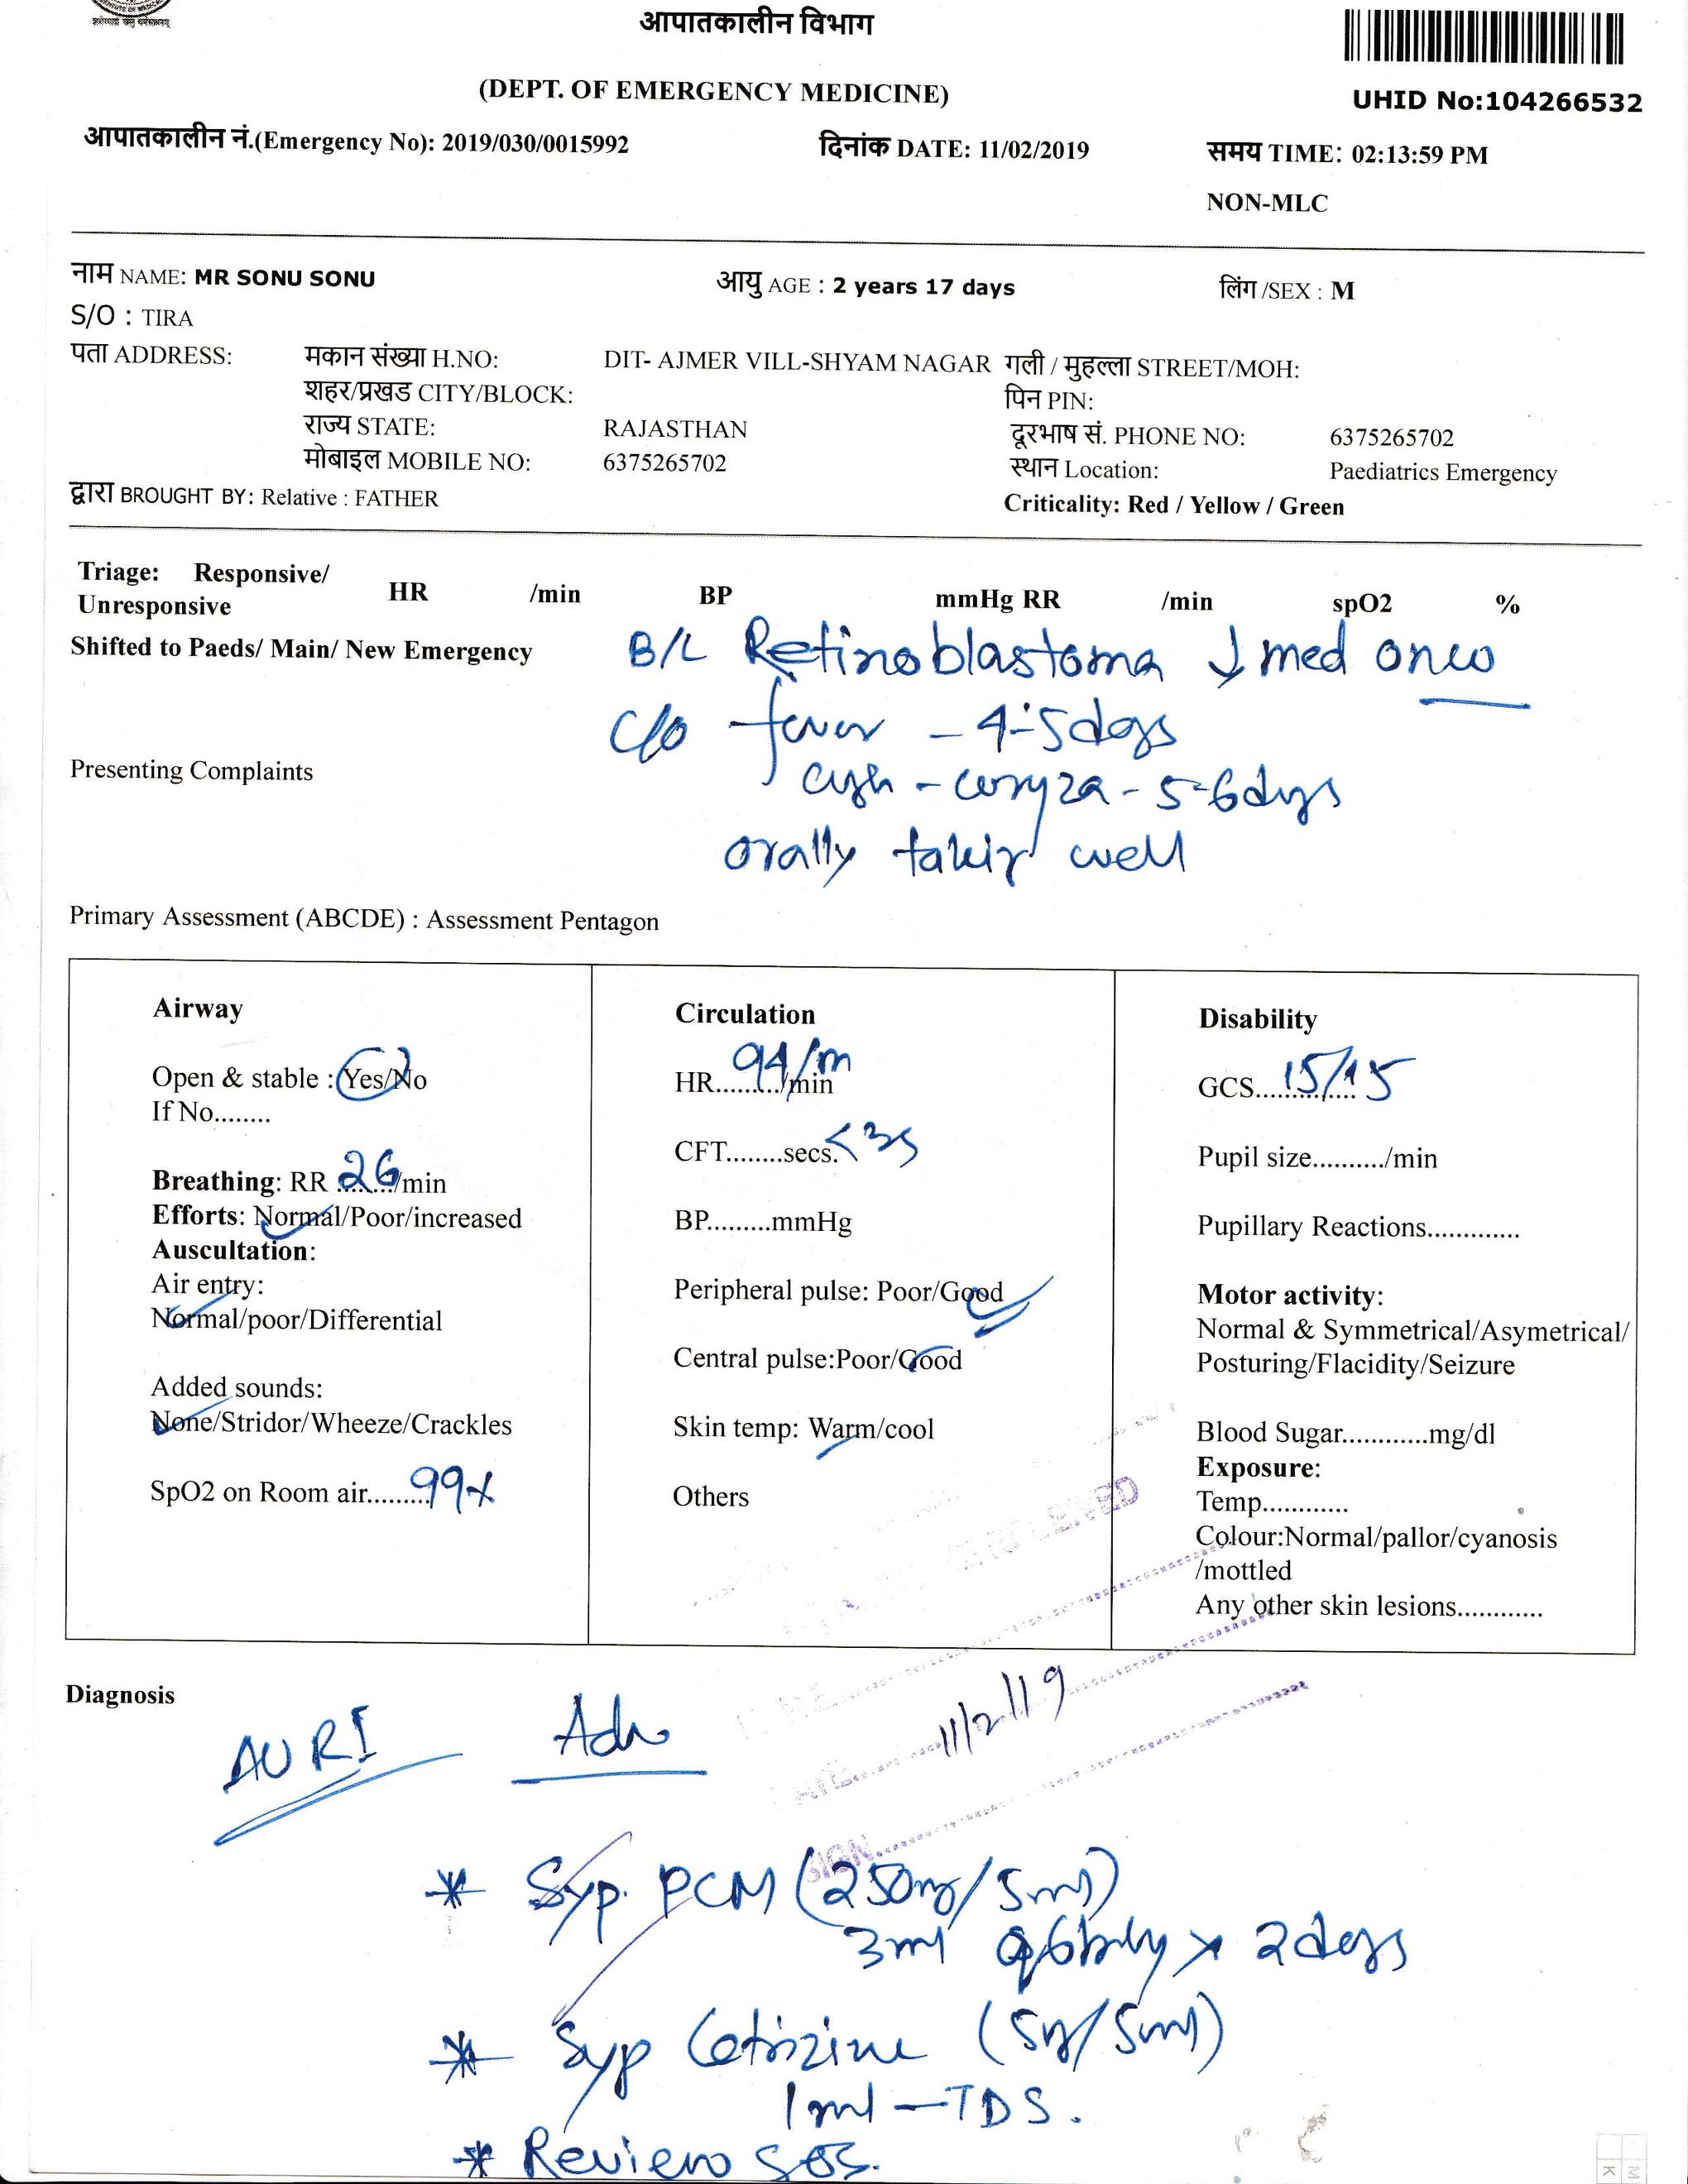 आपातकालीन विभाग
(DEPT. OF EMERGENCY MEDICINE)
UHID No:104266532
आपातकालीन नं.(Emergency No): 2019/030/0015992 दिनांक DATE: 11/02/2019 समय TIME: 02:13:59 PM
NON-MLC
नाम NAME: MR SONU SONU आयु AGE : 2 years 17 days लिंग /SEX : M
S/O : TIRA
पता ADDRESS: मकान संख्या H.NO: DIT- AJMER VILL-SHYAM NAGAR गली / मुहल्ला STREET/MOH:
शहर/प्रखड CITY/BLOCK: पिन PIN:
राज्य STATE: RAJASTHAN दूरभाष सं. PHONE NO: 6375265702
मोबाइल MOBILE NO: 6375265702 स्थान Location: Paediatrics Emergency
द्वारा BROUGHT BY: Relative : FATHER Criticality: Red / Yellow / Green
Triage: Responsive/ HR /min BP mmHg RR /min spO2 %
Unresponsive
Shifted to Paeds/ Main/ New Emergency B/L Retinoblastoma ↓ med onco
C/o fever - 4-5days
Presenting Complaints
cough - coryza - 5-6days
orally taking well
Primary Assessment (ABCDE) : Assessment Pentagon
Airway
Open & stable : Yes/No
If No........
Breathing: RR ........./min 26
Efforts: Normal/Poor/increased
Auscultation:
Air entry:
Normal/poor/Differential
Added sounds:
None/Stridor/Wheeze/Crackles
SpO2 on Room air......... 99%
Circulation
HR........./min 94/m
CFT........secs. <3s
BP.........mmHg
Peripheral pulse: Poor/Good
Central pulse:Poor/Good
Skin temp: Warm/cool
Others
Disability
GCS............... 15/15
Pupil size........../min
Pupillary Reactions.............
Motor activity:
Normal & Symmetrical/Asymetrical/
Posturing/Flacidity/Seizure
Blood Sugar............mg/dl
Exposure:
Temp............
Colour:Normal/pallor/cyanosis
/mottled
Any other skin lesions............
Diagnosis
AURI Adv
11/2/19
SIGN
* Syp. PCM (250mg/5ml)
3ml q6hrly x 2days
* Syp Cetirizine (5mg/5ml)
1ml - TDS.
* Review SOS.